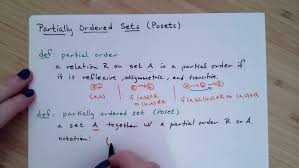 Partially Ordered Sets (Posets)
def: partial order
a relation R on set A is a partial order if
it is reflexive, antisymmetric, and transitive.
(a,a)
def: partially ordered set (Poset)
a set A together w/ a partial order R on A
notation: (